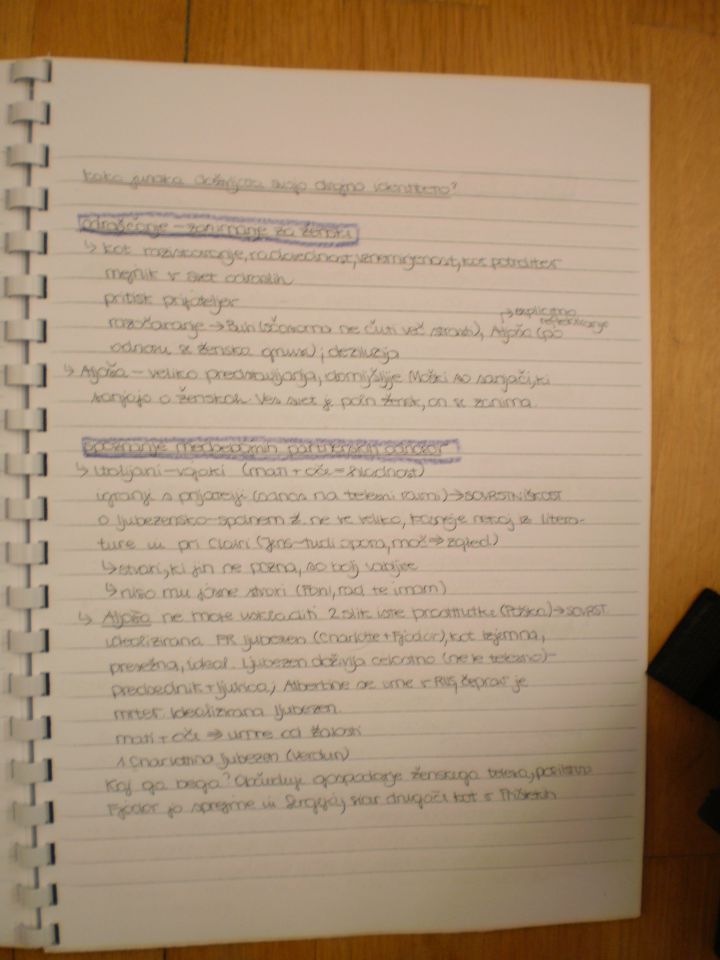 Kako junaka doživljata svojo drugno identiteto?
odraščanje - zanimanje za ženske
↳ kot raziskovanje, radovednost, vznemirjenost, kot potrditev
mejnik v svet odraslih
pritisk prijateljev
razočaranje → Buh (sčasoma ne čuti več strasti), Aljoša (po
→ eksplicitno
odnosu z žensko); deziluzija
↳ Aljoša - veliko predstavljanja, domišljije. Moški so sanjači, ki
sanjajo o ženskah. Ves svet je poln žensk, on se zanima.
spoznanje medsebojnih partnerskih odnosov
↳ Italijani - vojaki (mati + oče = hladnost)
igranje s prijatelji (odnos na telesni ravni) → SOVRSTNIŠKOST
o ljubezensko-spolnem ž. ne ve veliko, kasneje nekaj iz litera-
ture in pri Clairi (Jens - tudi opora, mož ⇒ zgled)
↳ stvari, ki jih ne pozna, so bolj vabljive
↳ niso mu jasne stvari (Poni, rad te imam)
↳ Aljoša ne more uskladiti 2 slik iste prostitutke (Poljska) → SOVRST.
idealizirana FR ljubezen (Charlotte + Fjodor), kot izjemna,
presežna, ideal. Ljubezen doživlja celostno (ne le telesno) -
predsednik + ljubica; Albertine se vrne v RUS, čeprav je
mrtev. Idealizirana ljubezen.
mati + oče ⇒ umre od žalosti
1 Charlottina ljubezen (Verdun)
Kaj ga bega? Občuduje gospodarje ženskega telesa,
Fjodor jo sprejme in Sergeja, sicer drugače kot v